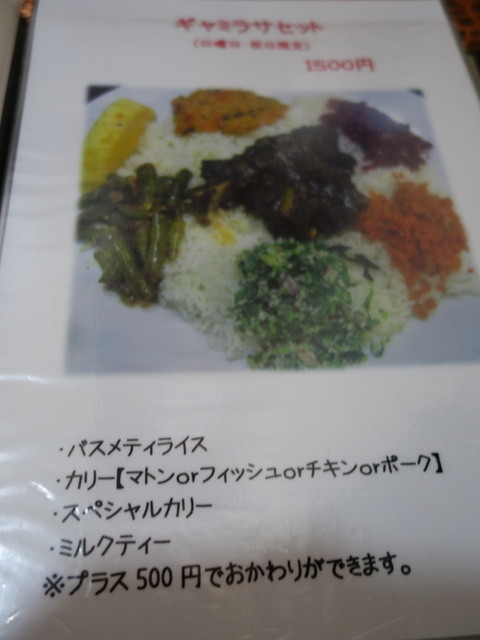 ギャミラサセット
(日曜日・祝日限定)
1500円
・バスメティライス
・カリー【マトンorフィッシュorチキンorポーク】
・スペシャルカリー
・ミルクティー
※プラス500円でおかわりができます。